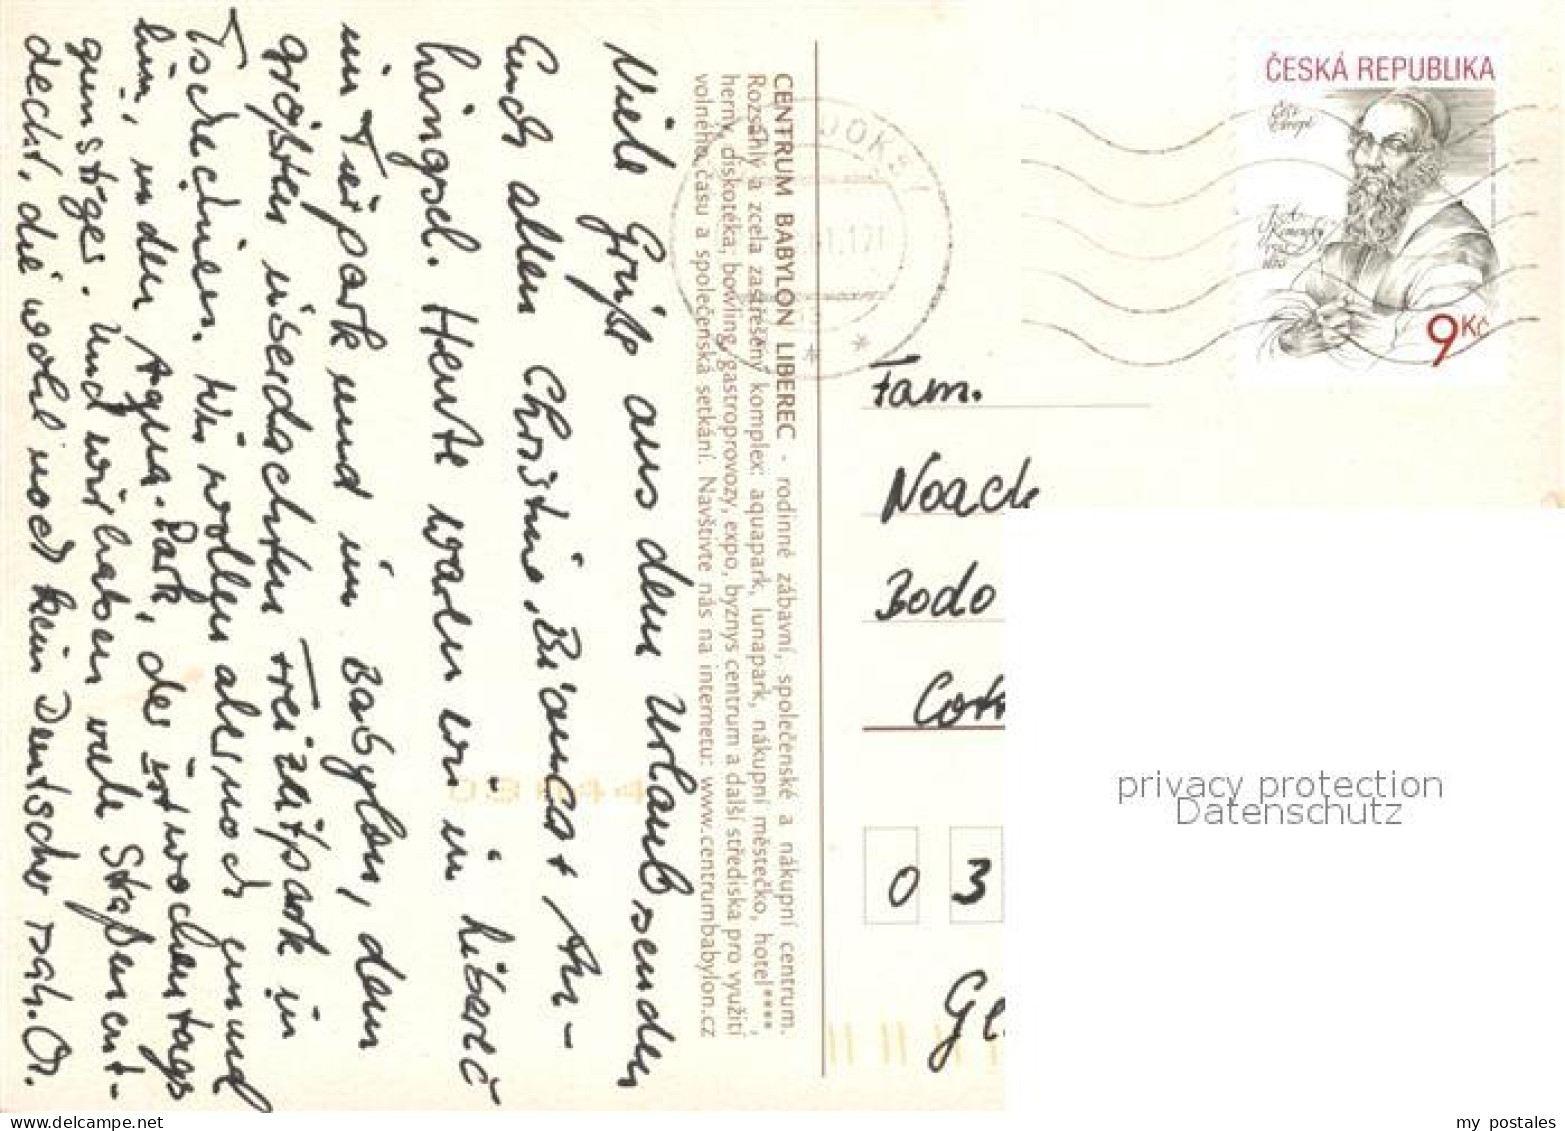 Viele Grüße aus dem Urlaub senden
Euch allen Christine, Bianca + An-
hängsel. Heute waren wir in Liberec
im Tierpark und im Babylon, dem
größten überdachten Freizeitpark in
Tschechien. Wir wollen aber noch
hin, in den Aqua-Park, der ist wochentags
günstiger. Und wir haben viele Straßen ent-
deckt, die wohl noch kein Deutscher sah.
CENTRUM BABYLON LIBEREC - rodinné zábavní, společenské a nákupní centrum.
Rozsáhlý a zcela zastřešený komplex: aquapark, lunapark, nákupní městečko, hotel****,
herny, diskotéka, bowling, gastroprovozy, expo, byznys centrum a další střediska pro využití
volného času a společenská setkání. Navštivte nás na internetu: www.centrumbabylon.cz
ČESKÁ REPUBLIKA
9Kč
Fam.
Noack
Bodo
Cott
0 3
privacy protection
Datenschutz
my postales